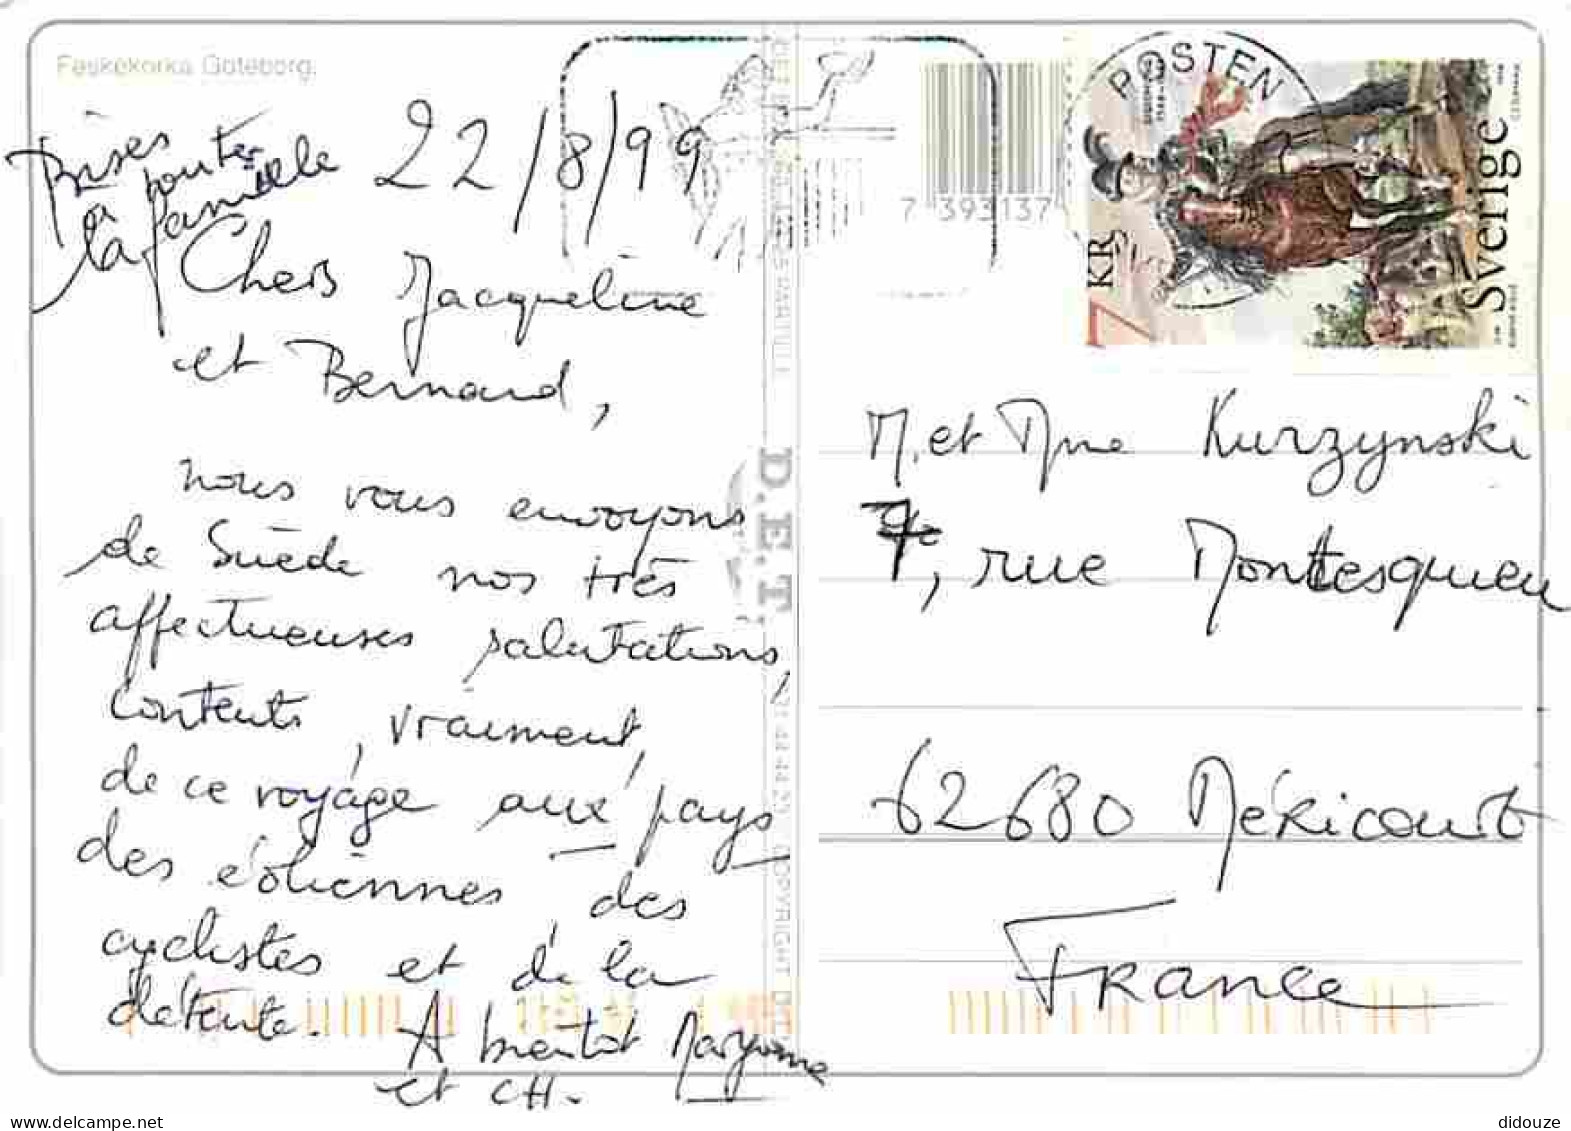 Feskekörka Göteborg.
Bises
à toute
la famille
22/8/99
Chers Jacqueline
et Bernard,
nous vous envoyons
de Suède nos très
affectueuses salutations,
contents, vraiment,
de ce voyage aux pays
des éoliennes, des
cyclistes et de la
détente.
A bientôt Maryvonne
et CH.
D.E.T.
COPYRIGHT
7 393137
POSTEN
7 KR
Sverige
M. et Mme Kurzynski
7, rue Montesquieu
62680 Méricourt
France
didouze